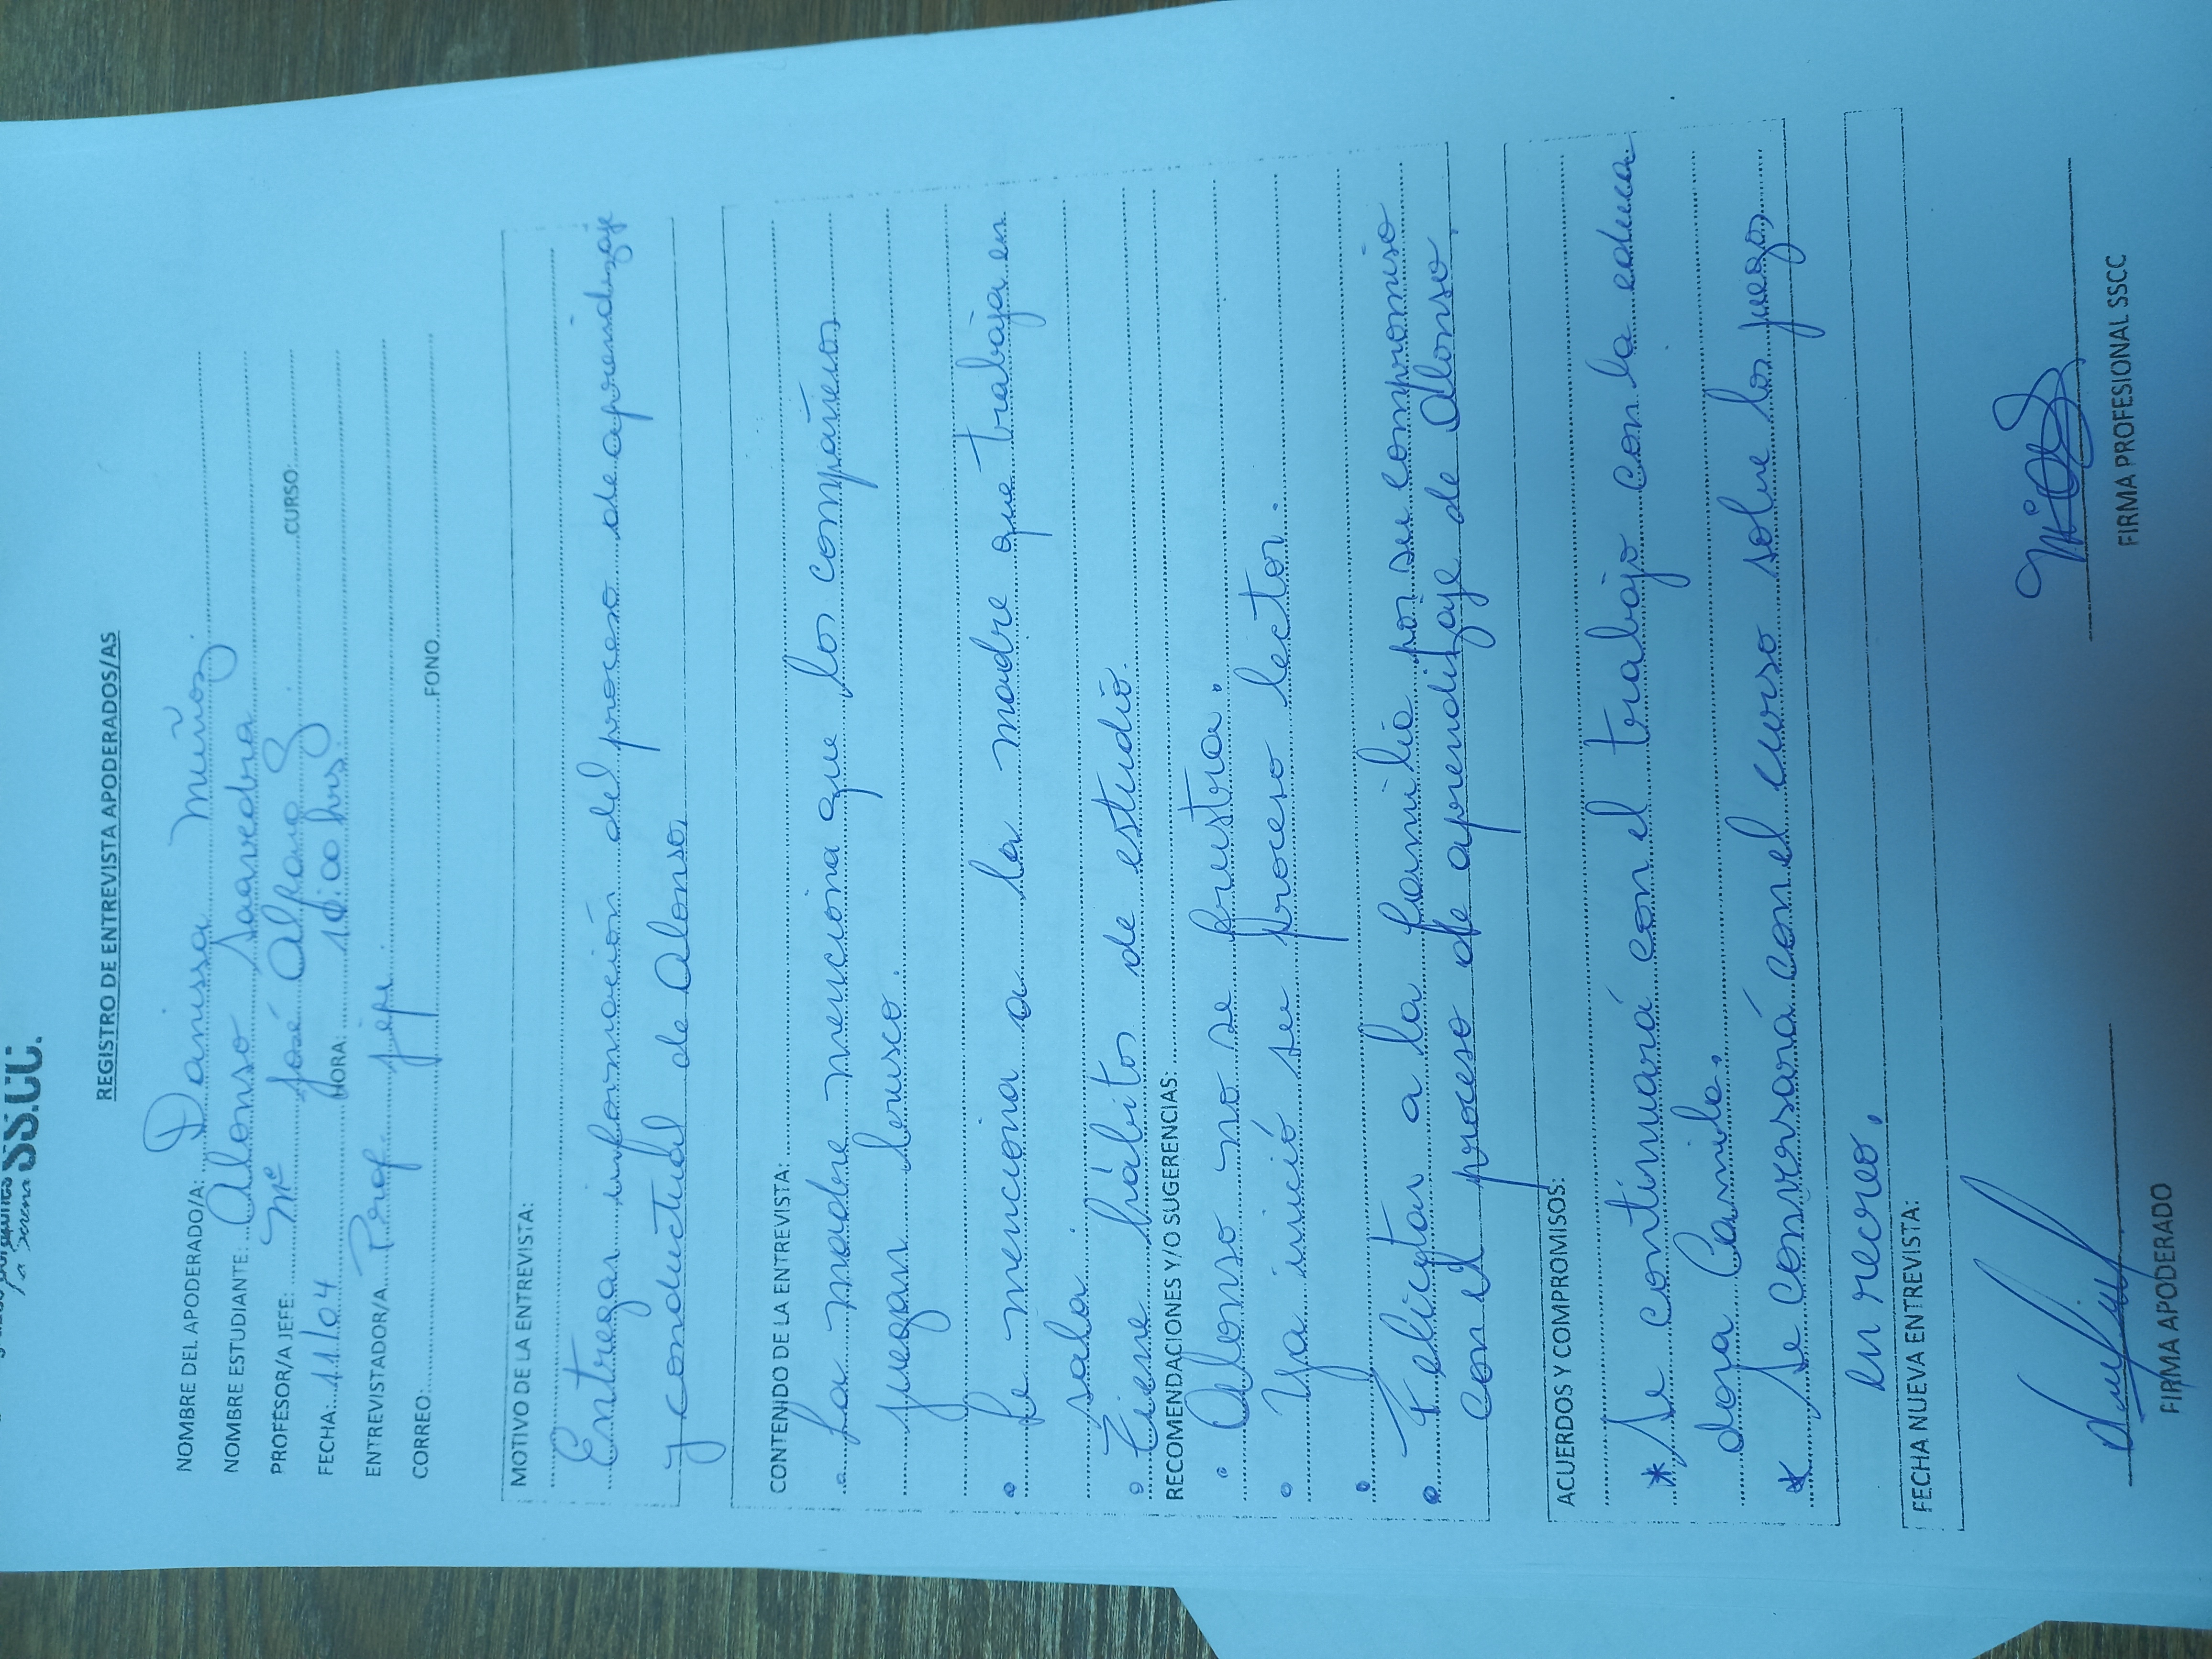 SS.CC.
La Serena
REGISTRO DE ENTREVISTA APODERADOS/AS
NOMBRE DEL APODERADO/A: Danissa Muñoz.
NOMBRE ESTUDIANTE: Alonso Saavedra
PROFESOR/A JEFE: Mª José Alfaro CURSO
FECHA: 11/04 HORA: hrs.
ENTREVISTADOR/A. Prof. jefe
CORREO: FONO
MOTIVO DE LA ENTREVISTA:
Entregar información del proceso de aprendizaje
y conductual de Alonso,
CONTENIDO DE LA ENTREVISTA:
• La madre menciona que los compañeros
juegan brusco.
• Se menciona a la madre que trabaja en
sala.
• Tiene hábitos de estudio.
RECOMENDACIONES Y/O SUGERENCIAS:
• Alonso no se frustra.
• Ya inició su proceso lector.
•
• Felicitar a la familia por su compromiso
con el proceso de aprendizaje de Alonso.
ACUERDOS Y COMPROMISOS:
* Se continuará con el trabajo con la educa
dora Camila.
* Se conversará con el curso sobre los juegos
en recreo.
FECHA NUEVA ENTREVISTA:
FIRMA APODERADO FIRMA PROFESIONAL SSCC